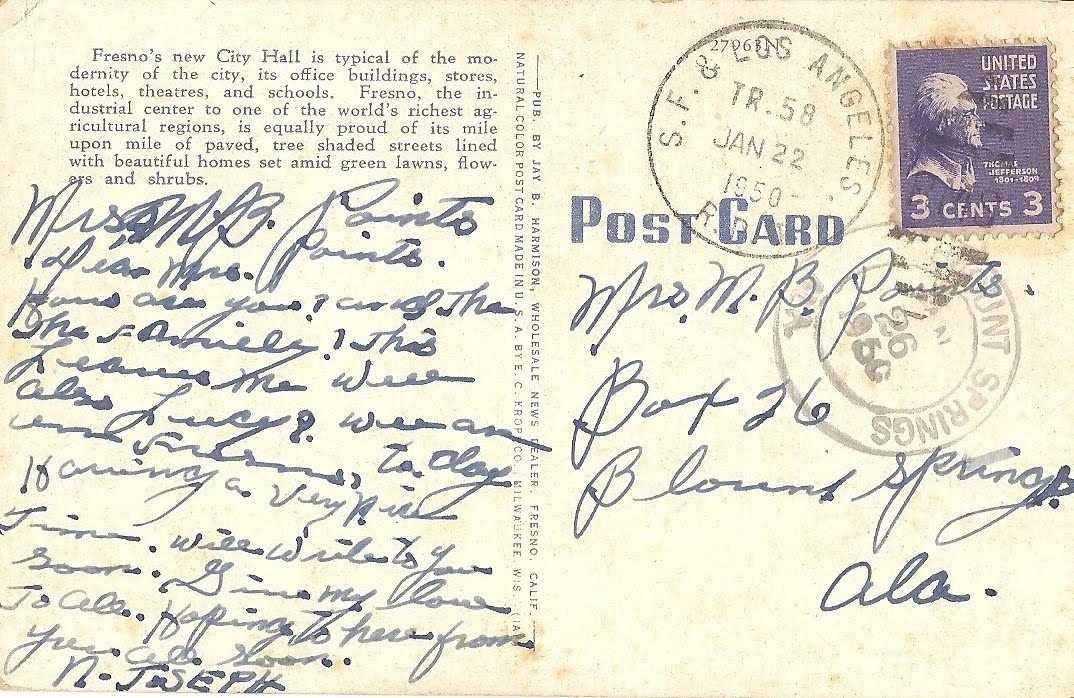 Fresno's new City Hall is typical of the mo-
dernity of the city, its office buildings, stores,
hotels, theatres, and schools. Fresno, the in-
dustrial center to one of the world's richest ag-
ricultural regions, is equally proud of its mile
upon mile of paved, tree shaded streets lined
with beautiful homes set amid green lawns, flow-
ers and shrubs.
Mrs M. B. Points
Dear Mrs. Points.
How are you? and the
the Family? This
Leaves me well
also Lucy & we are
in Fresno, to day
Having a very nice
Time. will write to you
soon. Give my love
To all. Hoping to hear from
you all soon.
N. JOSEPH
PUB. BY JAY B. HARMISON, WHOLESALE NEWS DEALER, FRESNO, CALIF.
NATURAL COLOR POST CARD MADE IN U.S.A. BY E. C. KROPP CO., MILWAUKEE, WIS.
27963N
S.F. & LOS ANGELES
TR. 58
JAN 22
1950
R.P.O.
UNITED
STATES
POSTAGE
THOMAS
JEFFERSON
1801-1809
3 CENTS 3
POST CARD
Mrs. M. B. Points.
Box 26
Blount Springs
Ala.
BLOUNT SPRINGS
JAN
26
1950